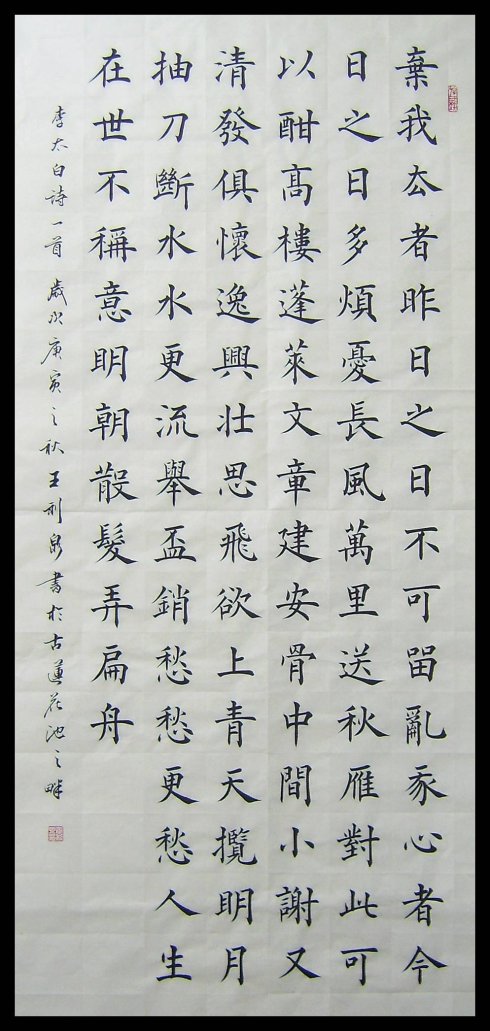 棄我去者昨日之日不可留亂我心者今
日之日多煩憂長風萬里送秋雁對此可
以酣高樓蓬萊文章建安骨中間小謝又
清發俱懷逸興壯思飛欲上青天攬明月
抽刀斷水水更流舉盃銷愁愁更愁人生
在世不稱意明朝散髮弄扁舟
李太白詩一首 歲次庚寅之秋王利泉書於古蓮花池之畔